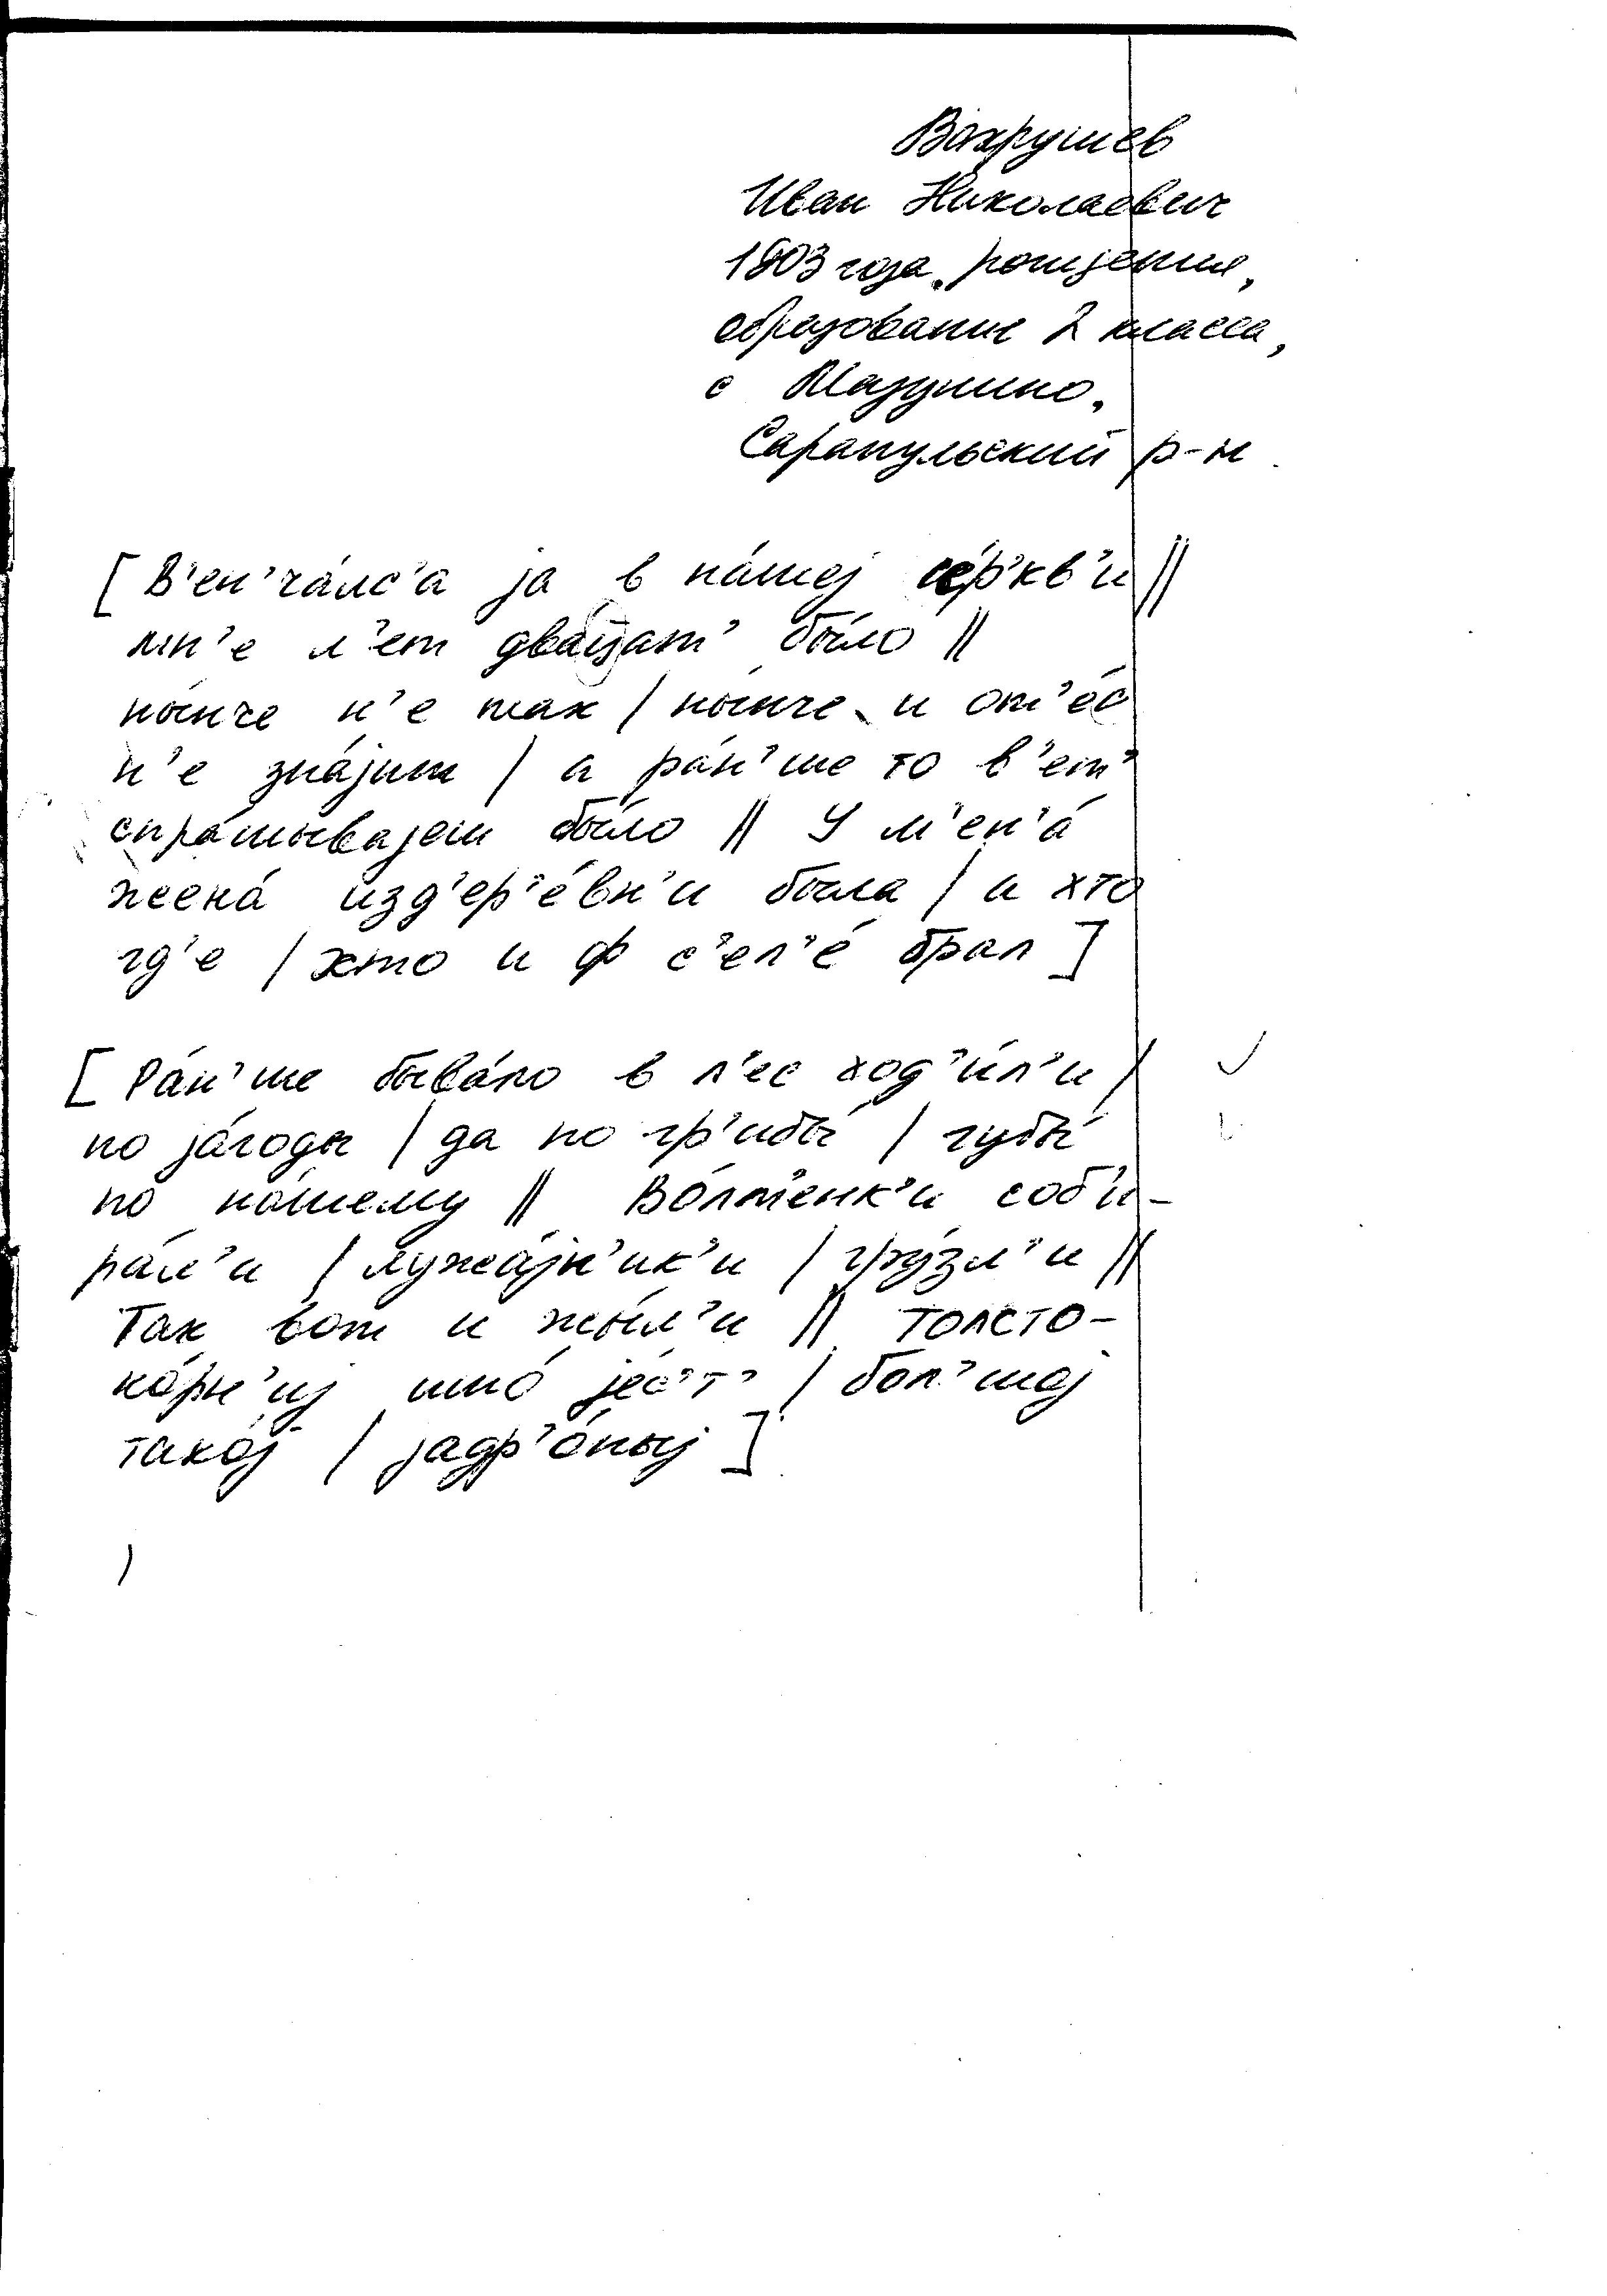 Вахрушев
Иван Николаевич
1903 года рождения,
образование 2 класса,
с Мазунино.
Сарапульский р-н
[ В'ен'ча́лс'а ја в на́шеј це́р'кв'и ||
мн'е л'ет два́цат' бы́ло ||
ны́нче н'е так / ны́нче и от'е́с
н'е зна́јит / а ра́н'ше то в'ет'
спра́шывајеш бы́ло || У м'ен'а́
жена́ изд'ер'е́вн'и была / а хто
гд'е / хто и ф с'ел'е́ брал ]
[ Ра́н'ше быва́ло в л'ес ход'и́л'и /
по ја́годы / да по гр'ибы́ / губы́
по на́шему || Во́лт'енк'и соб'и-
ра́л'и / лужа́јн'ик'и / гру́зл'и ||
Так вот и жы́л'и || толсто-
ко́рн'иј што́ јес'т' / бол'шој
тако́ј / јадр'о́ныј ]